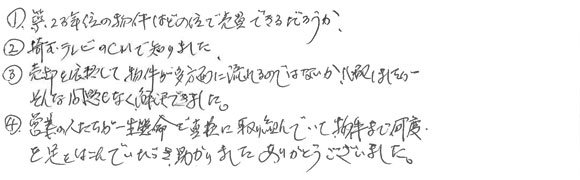 ①. 築23年位の物件はどの位で売買できるだろうか。
②埼玉テレビのCMで知りました。
③売却を依頼して物件が多方面に流れるのではないか心配しましたが
そんな問題もなく解決できました。
④. 営業の人たちが一生懸命で真摯に取り組んでいて、物件まで何度
も足をはこんでいただき助かりました ありがとうございました。